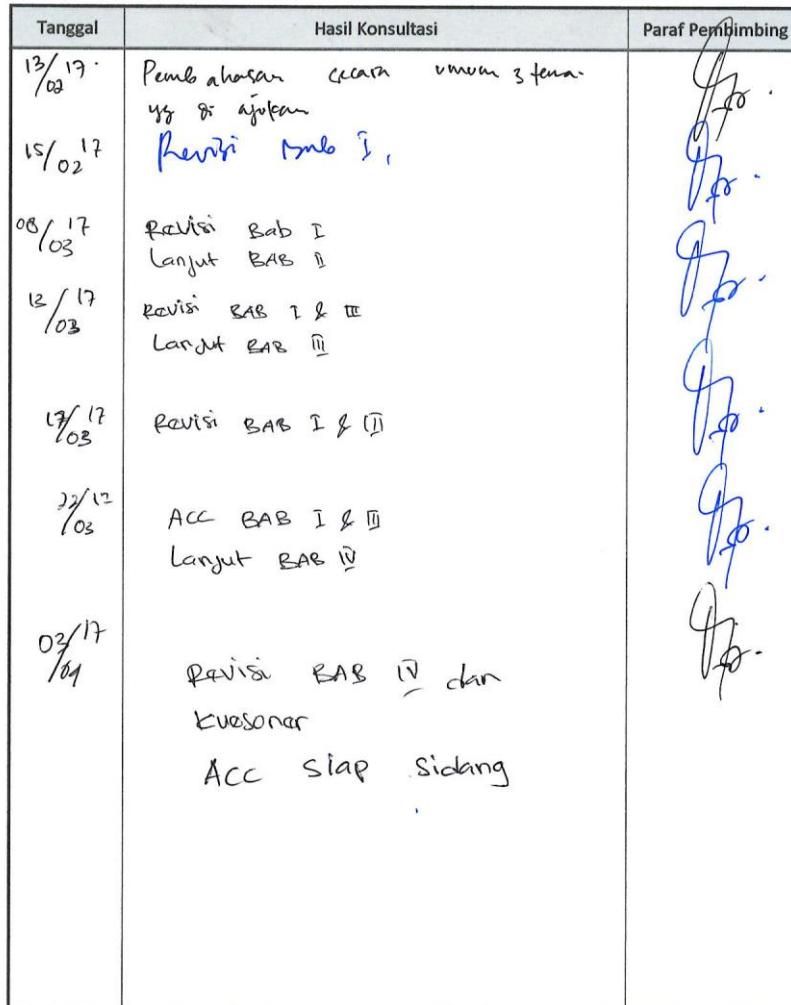 Tanggal Hasil Konsultasi Paraf Pembimbing
13/02 17. Pembahasan secara umum 3 tema
yg di ajukan
15/02 17 Revisi Bab I,
08/03 17 Revisi Bab I
Lanjut BAB II
13/03 17 Revisi BAB I & II
Lanjut BAB III
17/03 17 Revisi BAB I & III
22/03 17 ACC BAB I & III
Lanjut BAB IV
03/04 17 Revisi BAB IV dan
kuesoner
ACC siap sidang